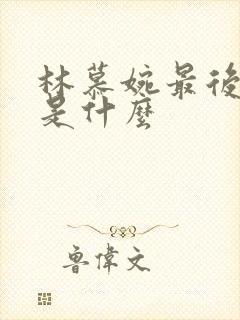 林慕婉最後
是什麼
魯偉文